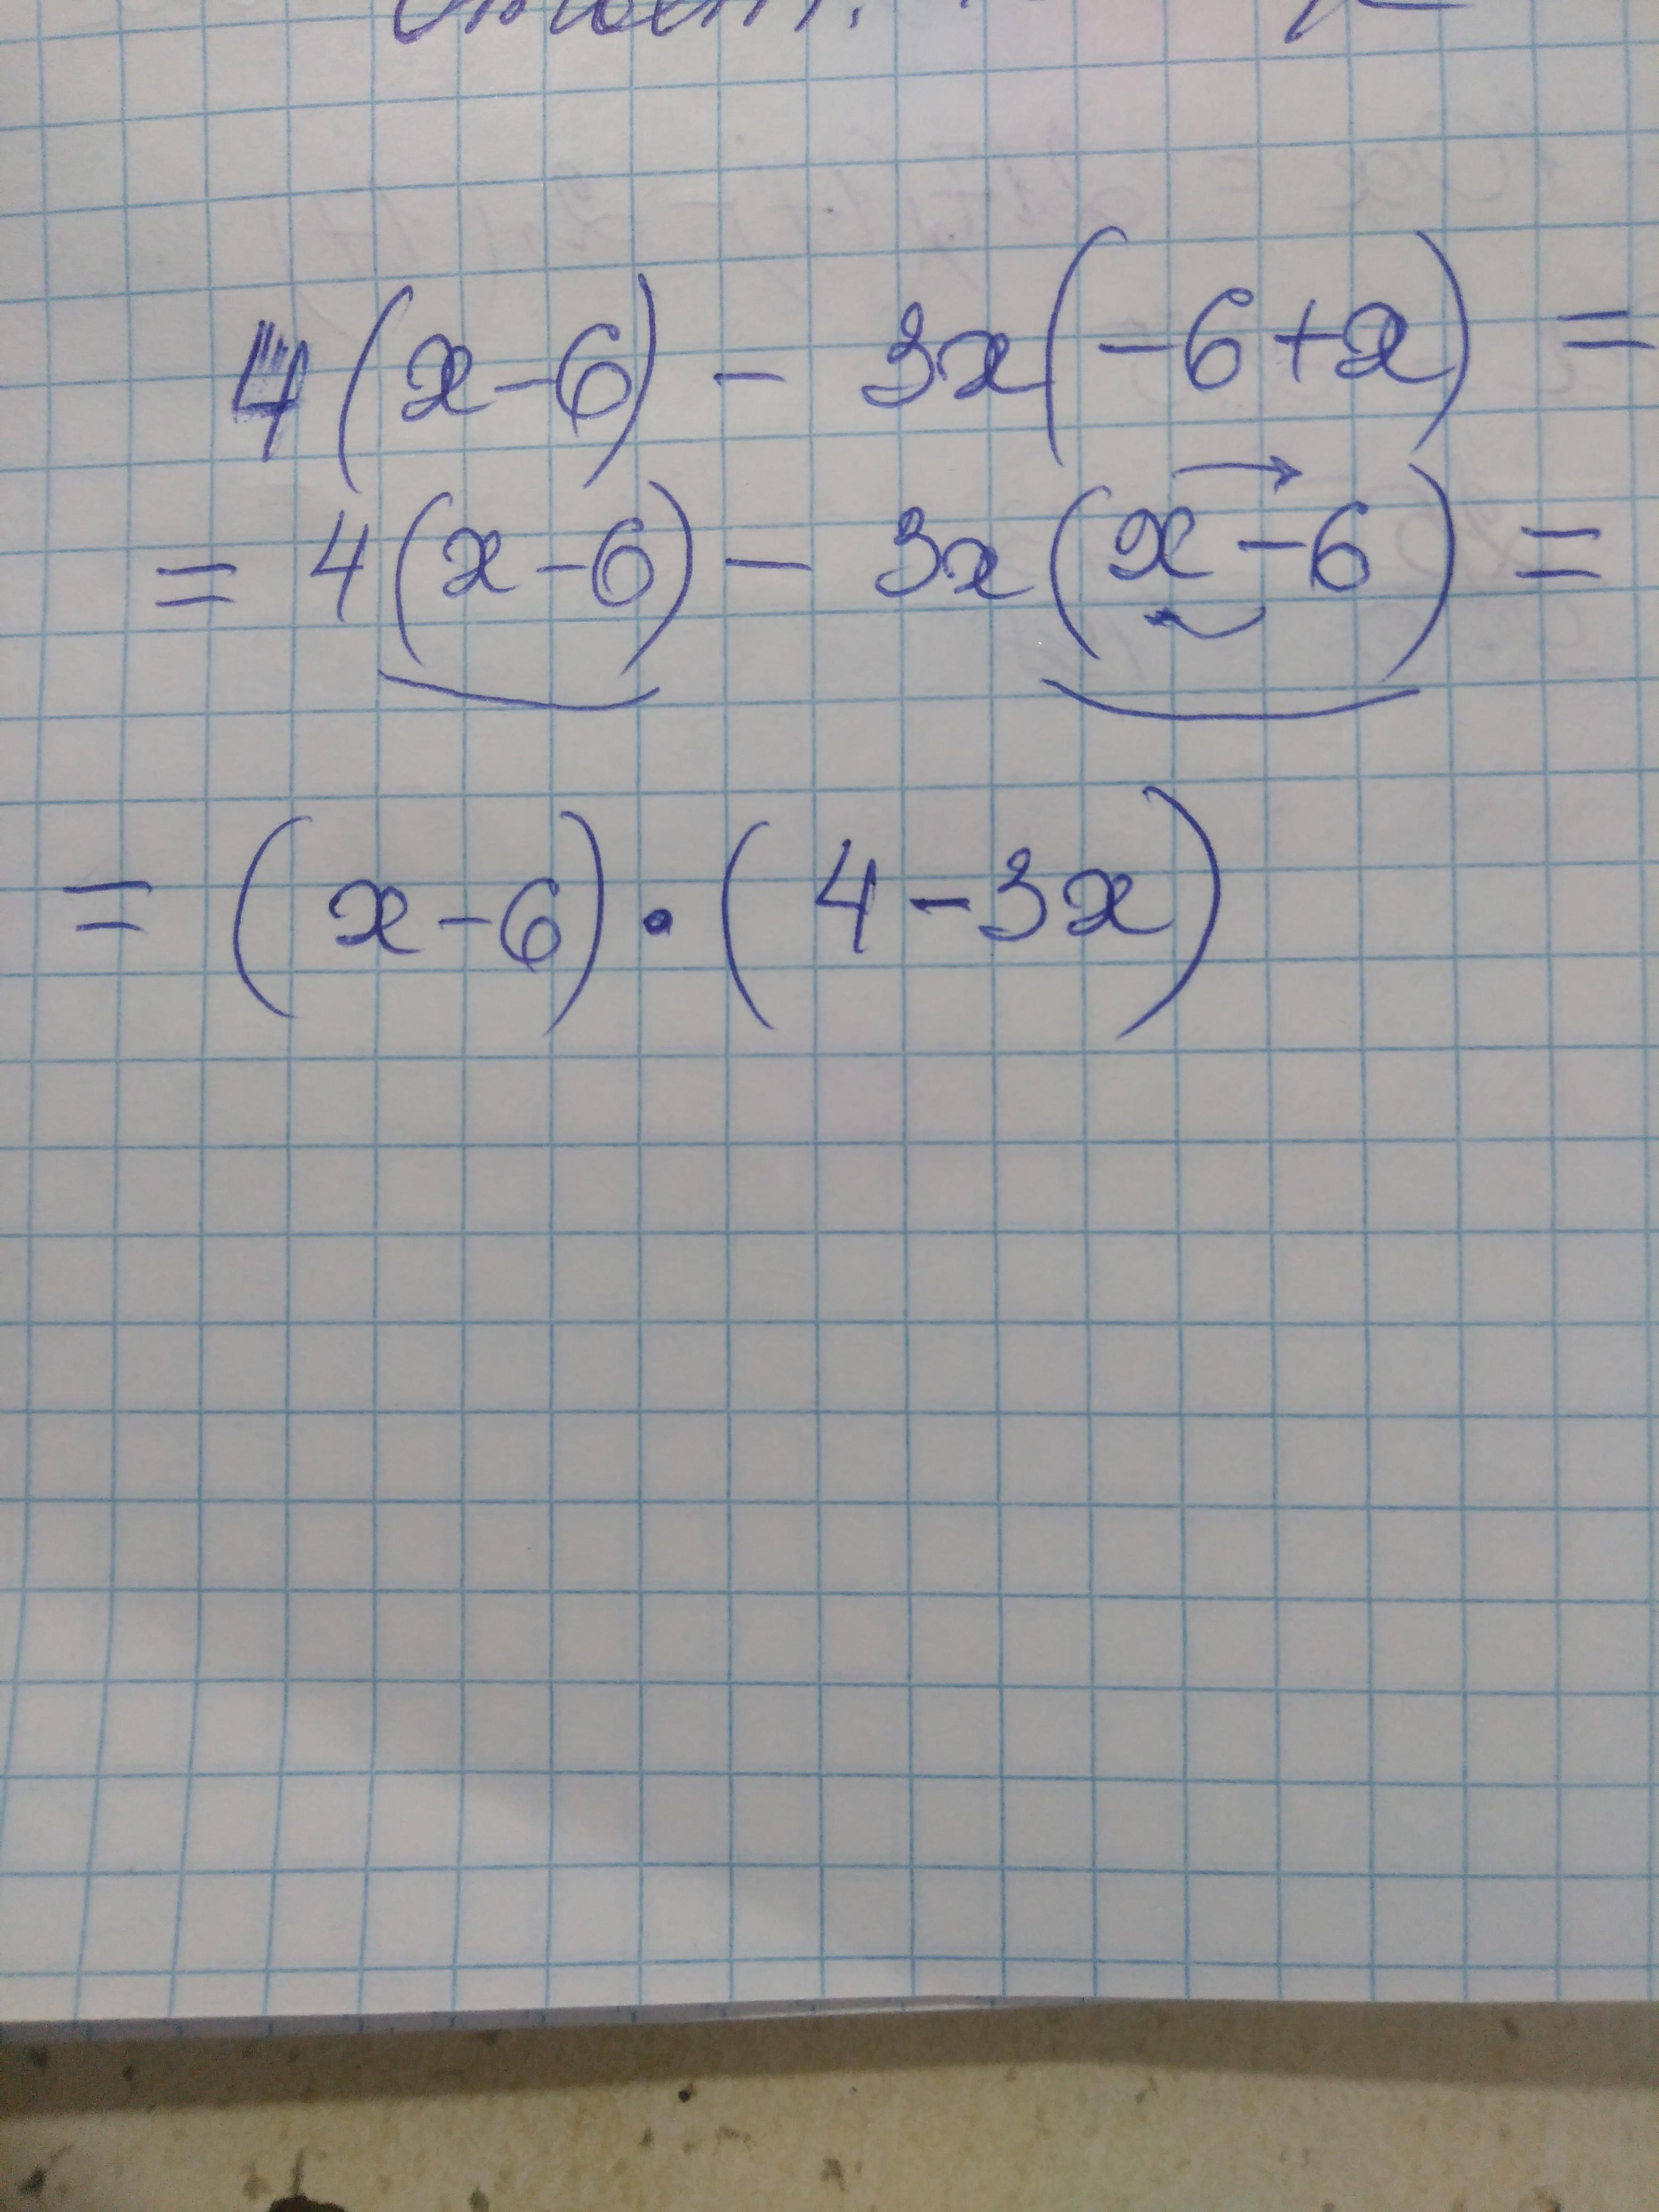 4(x-6) - 3x(-6+x) =
= 4(x-6) - 3x(x-6) =
= (x-6)·(4-3x)